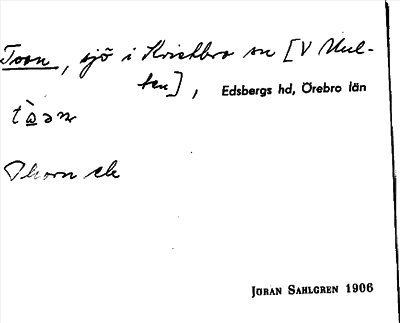 Toan, sjö i Kvistbro sn [V Mul-
ten], Edsbergs hd, Örebro län
Thorn
JÖRAN SAHLGREN 1906